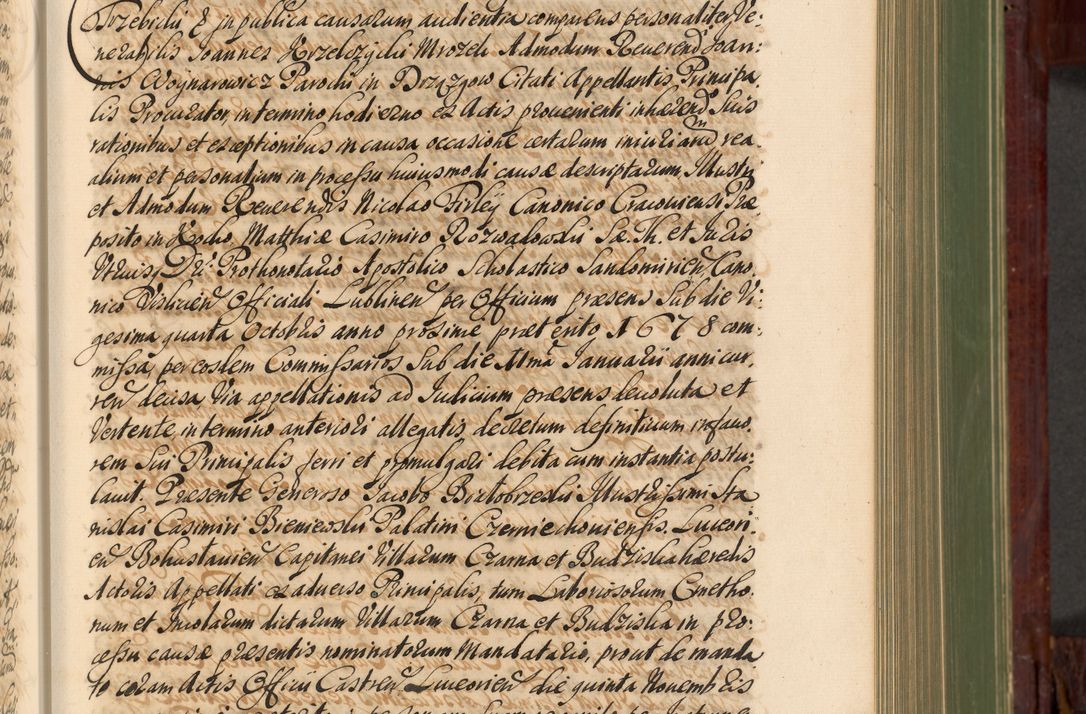 Trzebicki & in publica causarum audientia comparens personaliter Ve-
nerabilis Joannes Krzelczycki Mrozek Admodum Reverend Joan-
nis Woynarowicz Parochi in Drzązgow Citati Appellantis Principa
lis Procurator, in termino hodierno ex Actis proveniente inhaerend suis
rationibus et exceptionibus in causa occasione certarum iniuriarum rea-
lium et personalium in processu huiusmodi causae descriptarum, Illustri
et Admodum Reverendis Nicolao Firlęy Canonico Cracoviensi Prae
posito in Kocko, Matthiae Casimiro Rozwadowski Sae. Th. et Juris
Utrius Dri Prothonotario Apostolico Scholastico Sandomirien, Cano-
nico Vislicien Officiali Lublinen per Officium praesens sub die Vi-
gesima quarta Octobris anno proxime praeterito 1678 com-
missa, per eosdem Commissarios sub die Ulma Januarii anni cur-
ren decisa, Via appellationis ad Judicium praesens devoluta et
Vertente, in termino anteriori allegatis, decretum definitivum in favo-
rem sui Principalis ferri et promulgari debita cum instantia postu-
lavit. Praesente Generoso Jacobo Boztobrzeski Illustrissimi Sta
nislai Casimiri Bieniewski Palatini Czerniechoviensis, Luceori-
en Bohuslavien Capitanei Villarum Czarna et Budziska haeredis
Actoris Appellati ex adverso Principalis, tum Laboriosorum Cmetho
num et Incolarum dictarum Villarum Czarna et Budziska in pro-
cessu causae praesentis nominatorum Mandatario, prout de manda
to coram Actis Officii Castren Luceorien die quinta Novembris